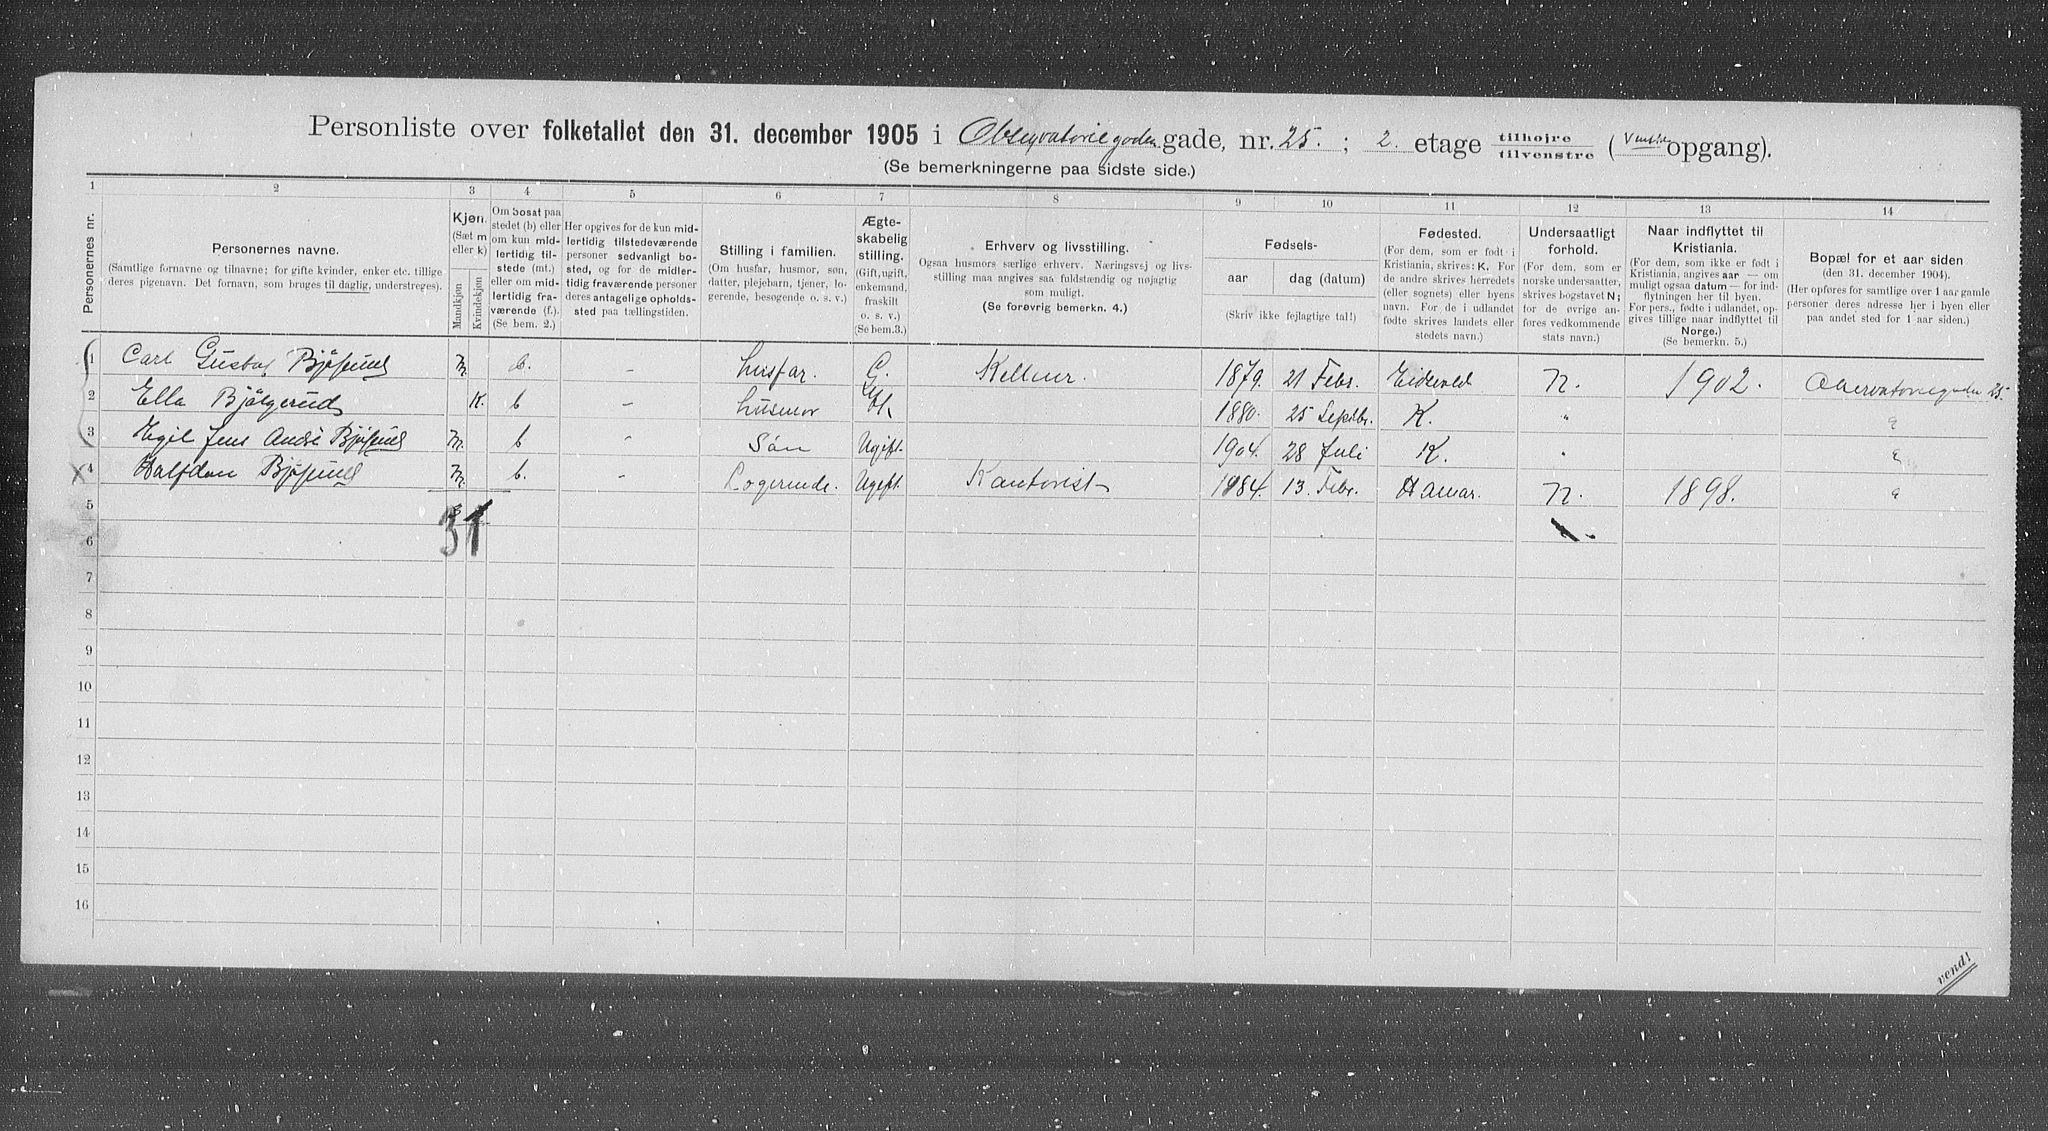 Personliste over folketallet den 31. december 1905 i Observatoriegaden gade, nr. 25. ; 2. etage tilhøjre / tilvenstre (Venstre opgang).
(Se bemerkningerne paa sidste side.)
1 2 3 4 5 6 7 8 9 10 11 12 13 14
Personernes nr.
Personernes navne.
(Samtlige fornavne og tilnavne; for gifte kvinder, enker etc. tillige
deres pigenavn. Det fornavn, som bruges til daglig, understreges).
Kjøn.
(Sæt m
eller k)
Mandkjøn
Kvindekjøn
Om bosat paa
stedet (b) eller
om kun mid-
lertidig til-
stede (mt.)
eller om mid-
lertidig fra-
værende (f.).
(Se bem. 2.)
Her opgives for de kun mid-
lertidig tilstedeværende
personer sedvanligt bo-
sted, og for de midler-
tidig fraværende personer
deres antagelige opholds-
sted paa tællingstiden.
Stilling i familien.
(Om husfar, husmor, søn,
datter, plejebarn, tjener, lo-
gerende, besøgende o. s. v.)
Ægte-
skabelig
stilling.
(Gift, ugift,
enkemand,
fraskilt
o. s. v.)
(Se bem. 3.)
Erhverv og livsstilling.
Ogsaa husmors særlige erhverv. Næringsvej og livs-
stilling maa angives saa fuldstændig og nøjagtig
som muligt.
(Se forøvrig bemerkn. 4.)
Fødsels-
aar
dag (datum)
(Skriv ikke fejlagtige tal!)
Fødested.
(For dem, som er født i
Kristiania, skrives: K. For
de andre skrives herredets
(eller sognets) eller byens
navn. For de i udlandet
fødte skrives landets eller
stedets navn.)
Undersaatligt
forhold.
(For dem, som er
norske undersaatter,
skrives bogstavet N;
for de øvrige an-
føres vedkommende
stats navn.)
Naar indflyttet til
Kristiania.
(For dem, som ikke er født i
Kristiania, angives aar — om
muligt ogsaa datum — for ind-
flytningen her til byen.
For pers., fødte i udlandet, op-
gives tillige naar indflyttet til
Norge.)
(Se bemerkn. 5.)
Bopæl for et aar siden
(den 31. december 1904).
(Her opføres for samtlige over 1 aar gamle
personer deres adresse her i byen eller
paa andet sted for 1 aar siden.)
1 Carl Gustav Bjølgerud m. b. – husfar. G. Kellner. 1879. 21 Febr. Eidsvold N. 1902. Observatoriegaden 25.
2 Ella Bjølgerud K. b – husmor 1880. 25 Septbr. K. "
3 Egil Jens André Bjølgerud m. b – Søn Ugift. 1904. 28 Juli K. "
X 4 Halfdan Bjølgerud m. b. – Logerende. Ugift. Kontorist 1884. 13. Febr. Hamar. N. 1898.
5
3 1
6
7
8
9
10
11
12
13
14
15
16
vend!